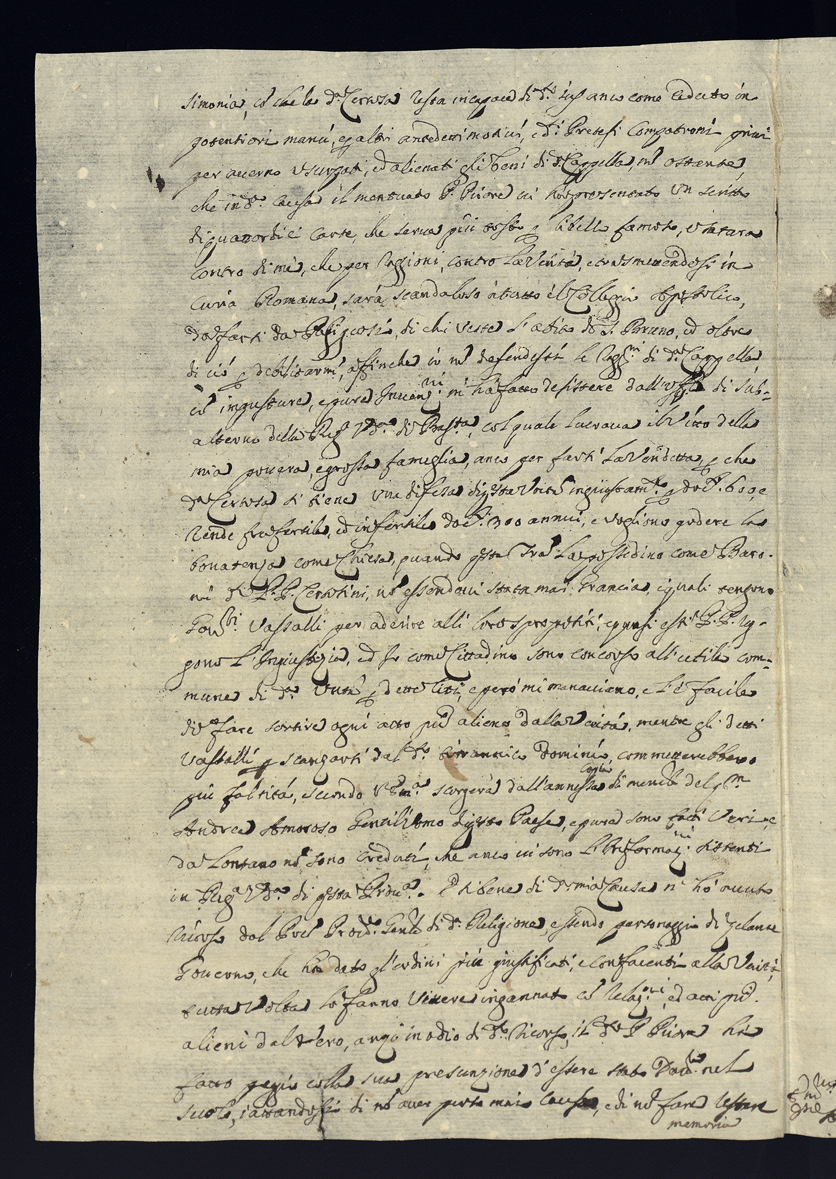 simonia, co' che la d.a Certosa resta incapace di d.o Jus anco como ceduto in
potentiori manu, e p altri antedetti motivi, e d.i Pretesi Compatroni privi
per averno usurpati, ed alienati gli beni di d.a Cappella, n' ostente,
che in d.a causa il mentuato P. Priore vi ha presentato un scritto
di quattordici carte, che serva più tosto p libello famoso, e satara
contro di me, che per raggioni, contro la verità, e trasmettendosi in
Curia Romana, sarà scandaloso a tutto il Colleggio Apostolico,
da farsi da Religiosi, di chi veste l'abito di S. Bruno, ed oltre
di ciò p debilitarmi, affinche io n' defendessi le ragg.ni di d.a Cappella
co' imposture, e pure invenz.ni m' ha fatto desistere dall'off.o di sub=
alterno della Reg.a Ud.a di, col quale lucrava il vitto della
mia povera, e grossa famiglia, anco per farsi la vendetta, p che
d.a Certosa si tiene una difesa di q.sta Univ.tà ingiustam.te p doc.ti 600, e
rende fra fertile, ed infertile doc.ti 300 annui, e vogliono godere la
bonatenza come Chiesa, quando q.sta Tra' la possedino come Baro-
ni d.i P.P. Certosini, n' essendovi stata mai Grancia, i quali tengono
Gov.bi Vassalli per aderire alli loro spropositi, e quasi essi P.P. rg-
pono l'Ingiustizia, ed Io come Cittadino sono concorso all'utile com-
mune di d.a Univ.tà p dette liti, e però mi manacciano, e l'è facile
di fare sortire ogni atto più alieno dalla verità, mentre gli detti
Vassalli p scanzarsi dal d.o tirannico dominio, commetterebbero
più falsità, secondo V. Em.a scorgerà dall'annessa copia di memor.le del q.m
Andrea Amoroso Gentil'omo di q.sto Paese, e pure sono fatti veri, e
da lontano n' sono creduti, che anco vi sono l'Informaz.ni sistenti
in Reg.a Ud.a di q.sta Prov.a. E si bene di d.a mia Causa n' ho avuto
ricorso dal Proc.re Gen.le di d.a Religione, essendo personaggio di zelante
Governo, che ha dato gl'ordini più giustificati, e confacenti alla verità,
tutta volta lo fanno vivere ingannato co' relaz.ni, ed atti più
alieni dal vero, anzi in odio di d.o ricorso, il d.o P. Priore ha
fatto peggio colla sua presunzione d'essere stato nel
seculo, iattandosi di n' aver perso mai causa, e di n' fare restare
memoria